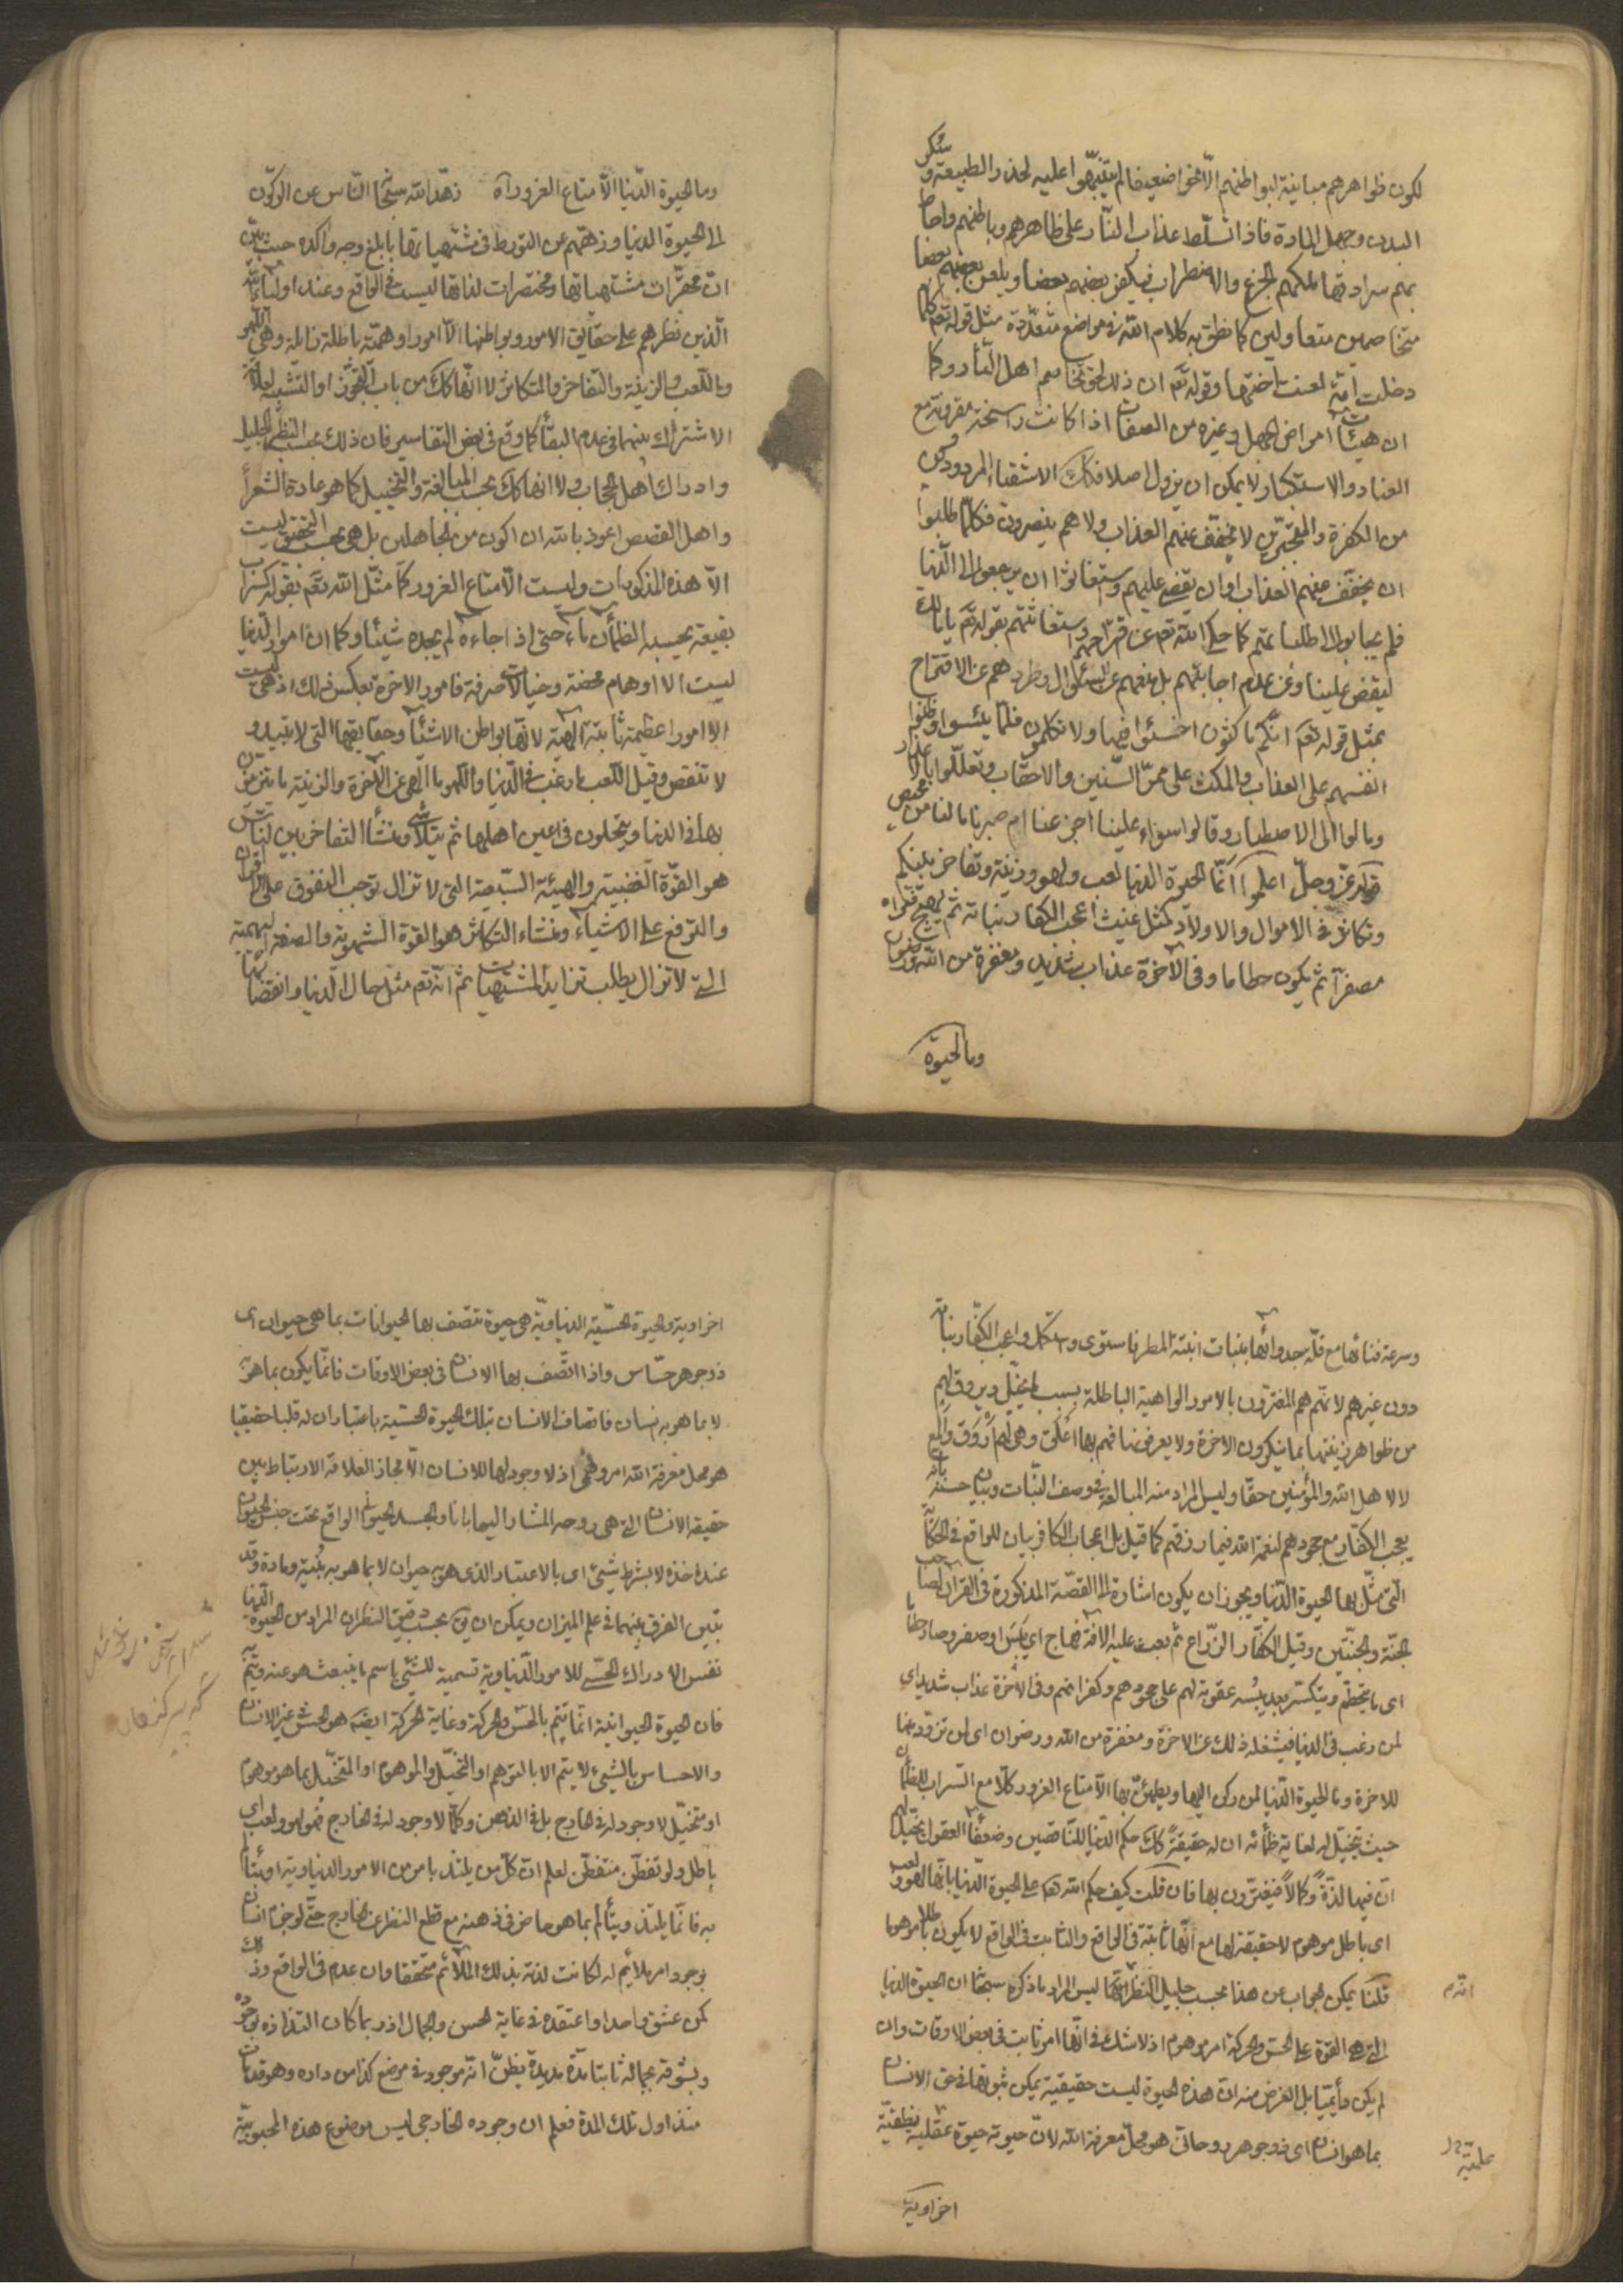 لكون ظواهرهم مباينة لبواطنهم الا نحوا ضعيفا لم يتنبهوا عليه لخدر الطبيعة وسكر
البدن وجهل المادة فاذا تسلّط عذاب النّار على ظاهرهم وباطنهم واحاط
بهم سرادقها ملكهم الجزع والاضطراب فيكفر بعضهم بعضا ويلعن بعضهم بعضا
متخاصمين متعاولين كما نطق به كلام الله في مواضع متعدّدة مثل قوله تعم كلما
دخلت امّة لعنت اختها وقوله تعم ان ذلك لحق تخاصم اهل النّار وكما
ان هيئات امراض الجهل وغيره من الصفات اذا كانت راسخة مقرونة مع
العناد والاستكبار لا يمكن ان يزول اصلا فكك الاشقياء المردودين
من الكفرة والمتجبّرين لا يخفّف عنهم العذاب ولا هم ينصرون فكلّما طلبوا
ان يخفّف عنهم العذاب او ان يقضى عليهم واستغاثوا ان يرجعوا الى الدّنيا
فلم يجابوا الى طلباتهم كما حكى الله تعم عن واستغاثتهم بقوله تعم يا مالك
ليقض علينا وعن عدم اجابتهم بل منعهم عن السئوال وطردهم عن الاقتراح
بمثل قوله تعم انّكم ماكثون اخسئوا فيها ولا تكلمون فلمّا يئسوا ووطّنوا
انفسهم على العذاب والمكث على ممرّ السّنين والاحقاب وتعلّلوا بالاعذار
ومالوا الى الاصطبار وقالوا سواء علينا اجزعنا ام صبرنا ما لنا من محيص
قوله عزّ وجلّ اعلموا انّما الحيوة الدنيا لعب ولهو وزينة وتفاخر بينكم
وتكاثر في الاموال والاولاد كمثل غيث اعجب الكفار نباته ثم يهيج فتراه
مصفرا ثم يكون حطاما وفي الاخرة عذاب شديد ومغفرة من الله ورضوان
وما الحيوة
وما الحيوة الدّنيا الّا متاع الغرور آه زهّد الله سبحا النّاس عن الركون
الى الحيوة الدنيا وزهّهم عن التورط في مشتهياتها بابلغ وجه واكده حيث بيّن
انّ محقّرات مشتهياتها ومختصرات لذاتها ليست في الواقع وعند اولياء الله
الّذين نظرهم على حقايق الامور وبواطنها الّا امورا وهميّة باطلة زايلة وهي اللهو
واللّعب والزينة والتفاخر والتكاثر لا انّها كك من باب التجوّز او التشبيه لعلاقة
الاشتراك بينهما في عدم البقاء كما وقع في بعض التفاسير فان ذلك بحسب النظر الجليل
وادراك اهل الحجاب ولا انها كك بحسب المبالغة والتخييل كما هو عادة الشعراء
واهل القصص اعوذ بالله ان اكون من الجاهلين بل هي بحسب التحقيق ليست
الّا هذه المذكورات وليست الّا متاع الغرور كما مثّل الله تعم بقوله كسراب
بقيعة يحسبه الظمأن ماء حتى اذا جاءه لم يجده شيئا وكما ان امور الدنيا
ليست الا اوهام محضة وخيالات صرفة فامور الاخرة بعكس ذلك اذ هي ليست
الا امورا عظيمة ثابتة الهيّة لانّها بواطن الاشياء وحقايقها التي لا تبيد و
لا تنقص وقيل اللّعب ما رغّب في الدّنيا واللّهو ما الهى عن الاخرة والزينة ما تتزيّنون
بها في الدنيا ويتحلون في اعين اهلها ثم يتلاشى ومنشأ التفاخر بين النّاس
هو القوّة الغضبيّة والهيئة السّبعية التي لا تزال توجب التفوق على الاقران
والترفع على الاشياء ومنشاء التكاثر هو القوة الشهوية والصفة البهيمية
التي لا تزال يطلب تزايد المشتهيات ثم انّه تعم مثّل حال الدّنيا وانقضائها
وسرعة فنائها مع قلّة جدوائها بنبات انبته المطر فاستوى واستكمل واعجب الكفّار نباته
دون غيرهم لانّهم هم المغترّون بالامور الواهية الباطلة بسبب ما يتخيّل ويروق لهم
من ظواهر زينتها بما ينكرون الاخرة ولا يعرفونها فهم بها اعلق وهي لهم اروق والمع
لا لاهل الله والمؤمنين حقّا وليس المراد منه المبالغة في وصف النّبات وبيان حسنه بانّه
يعجب الكفّار مع جحودهم لنعمة الله فيما رزقهم كما قيل بل اعجاب الكافر بيان للواقع في الحكاية
الّتي مثّل بها الحيوة الدّنيا ويجوز ان يكون اشارة الى القصّة المذكورة في القرآن لصاحب
الجنّة والجنّتين وقيل الكفّار الزرّاع ثم بعث عليه الافة فهاج اي يبس واصفر وصار حطاما
اى ما يتحطّم ويتكسّر بعد يبسه عقوبة لهم على جحودهم وكفرانهم وفي الاخرة عذاب شديد اى
لمن رغب في الدنيا فيشغله ذلك عن الاخرة ومغفرة من الله ورضوان اى لمن تزوّد منها
للاخرة وما الحيوة الدّنيا لمن ركن اليها ويطمئنّ بها الّا متاع الغرور كلامع السّراب للظمأن
حيث يتخيّل له لغاية ظمائه ان له حقيقة كك حكم الدّنيا للنّاقصين وضعفاء العقول يتخيّل لهم
انّ فيها لذّة وكمالا فيغترّون بها فان قلت كيف حكم الله تعم على الحيوة الدّنيا بانّها لهو ولعب
اى باطل موهوم لا حقيقة لها مع انّها ثابتة في الواقع والثابت في الواقع لا يكون باطلا موهوما
قلنا يمكن الجواب عن هذا بحسب جليل النظر انّه ليس المراد بما ذكره سبحانه ان الحيوة الدنيا
التي هي القوة على الحسّ والحركة امر موهوم اذ لا شك في انّها امر ثابت في بعض الاوقات وان
لم يكن دائميّا بل الغرض منه انّ هذه الحيوة ليست حقيقية يمكن ثبوتها في حق الانسان
بما هو انسان اى ذو جوهر روحاني هو محلّ معرفة الله لانّ حيوته حيوة عقلية نطقيّة
علميّة
اخراوية
اخراوية والحيوة الحسّية الدنياويّة هي حيوة تتصّف بها الحيوانات بما هي حيوان اى
ذو جوهر حسّاس واذا اتّصف بها الانسان في بعض الاوقات فانّما يكون بما هو به
لا بما هو به انسان فاتصاف الانسان بتلك الحيوة الحسّية باعتبار ان له قلبا حقيقيا
هو محل معرفة الله امر وهمى اذ لا وجود لها للانسان الّا مجازا لعلاقة الارتباط بين
حقيقة الانسان التي هي روحه المشار اليها بانا والجسد الحيواني الواقع تحت جنس الحيوان
عند اخذه لا بشرط شيئ اى بالاعتبار الذي هو به حيوان لا بما هو به بُنية ومادة وقد
تبيّن الفرق بينهما في علم الميزان ويمكن ان يق بحسب دقيق النظر ان المراد من الحيوة الدّنيا
نفس الادراك الحسّي للامور الدّنياوية تسمية للشئي باسم ما ينبعث هو عنه ويتمّ به
فان الحيوة الحيوانية انّما يتم بالحسّ والحركة وغاية الحركة ايضه هو الحسّ في غير الانسان
والاحساس بالشئي لا يتم الا بالتوهم او التخيّل والموهوم او المتخيّل بما هو موهوم
او متخيّل لا وجود له في الخارج بل في الذهن وكلّ ما لا وجود له في الخارج فهو لهو ولعب اى
باطل ولو تفطّن متفطّن لعلم انّ كلّ من يلتذ بامر من الامور الدنياوية او يتألم
به فانّما يلتذ ويتألم بما هو حاضر في ذهنه مع قطع النظر عن الخارج حتّى لو جزم انسان
بوجود امر ملايم له لكانت لذته بذلك الملائم متحققا وان عدم في الواقع وذلك
كمن عشق واحدا واعتقده في غاية الحسن والجمال اذ ربما كان التذاذه بوجوده
وبشوقه بجماله ثابتا مدّة مديدة يظنّ انّه موجود في موضع كذا من داره وهو قد مات
منذ اول تلك المدة فعلم ان وجوده الخارجي ليس موضوع هذه المحبوبيّة